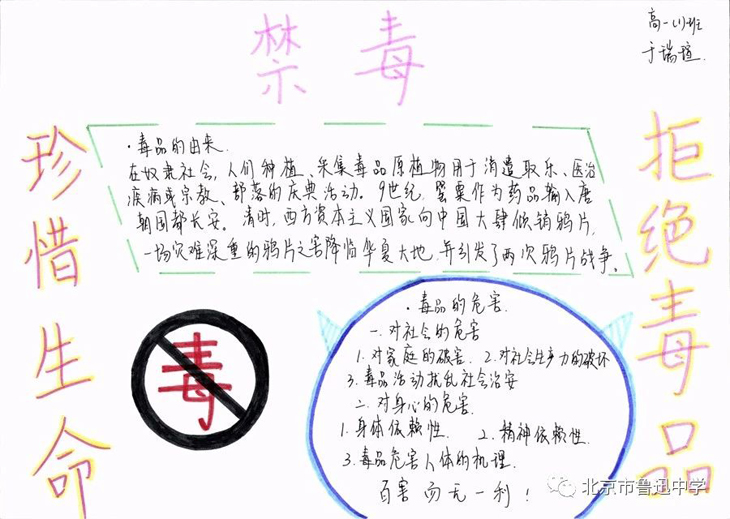 禁毒
高一(1)班
于瑞瑄
珍惜生命
拒绝毒品
·毒品的由来.
在奴隶社会,人们种植、采集毒品原植物用于消遣取乐、医治
疾病或宗教、部落的庆典活动。9世纪,罂粟作为药品输入唐
朝国都长安。清时,西方资本主义国家向中国大肆倾销鸦片,
一场灾难深重的鸦片之害降临华夏大地,并引发了两次鸦片战争。
毒
·毒品的危害.
一.对社会的危害
1.对家庭的破害. 2.对社会生产力的破坏
3.毒品活动扰乱社会治安
二.对身心的危害.
1.身体依赖性. 2.精神依赖性.
3.毒品危害人体的机理.
百害而无一利!
北京市鲁迅中学